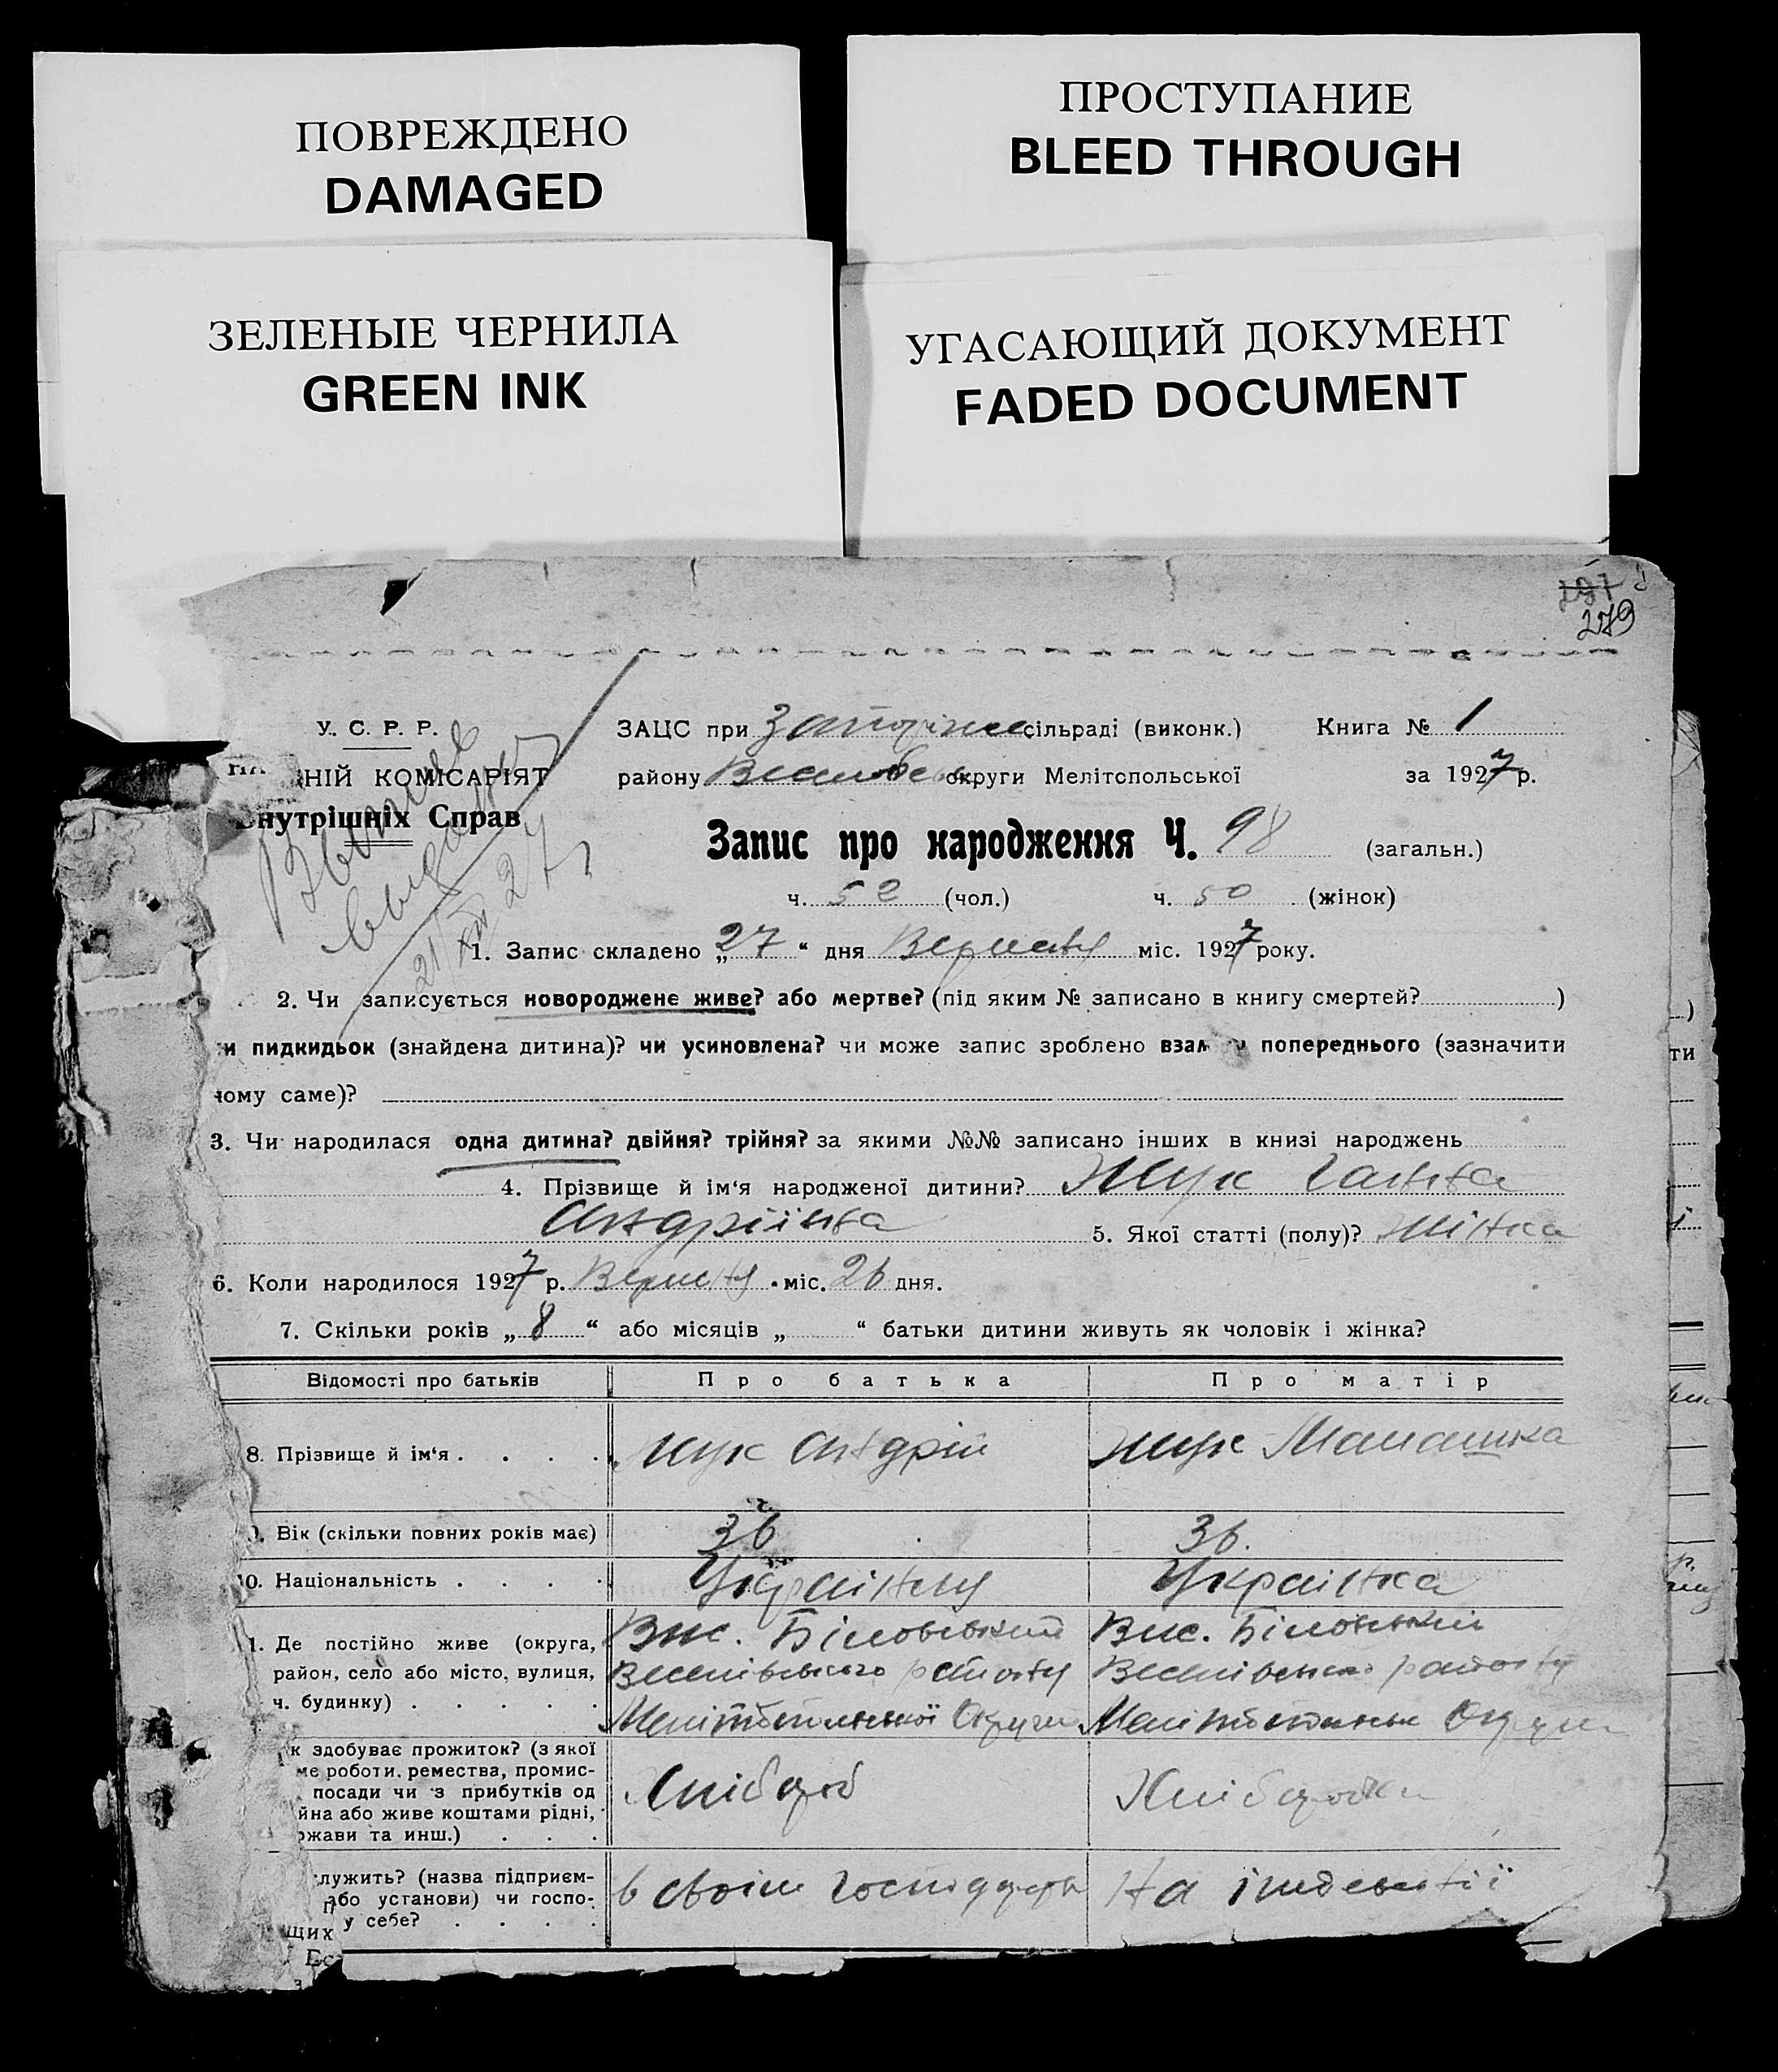 ПОВРЕЖДЕНО
DAMAGED
ПРОСТУПАНИЕ
BLEED THROUGH
ЗЕЛЕНЫЕ ЧЕРНИЛА
GREEN INK
УГАСАЮЩИЙ ДОКУМЕНТ
FADED DOCUMENT
279
У. С. Р. Р.
НІЙ КОМІСАРІЯТ
нутрішніх Справ
ЗАЦС при сільраді (виконк.) Книга № 1
району округи Мелітспольської за 1927 р.
Запис про народження Ч. 98 (загальн.)
ч. 52 (чол.) ч. 50 (жінок)
1. Запис складено „27“ дня Вересня міс. 1927 року.
2. Чи записується новороджене живе? або мертве? (під яким № записано в книгу смертей? )
и пидкидьок (знайдена дитина)? чи усиновлена? чи може запис зроблено взам попереднього (зазначити
чому саме)?
3. Чи народилася одна дитина? двійня? трійня? за якими №№ записано інших в книзі народжень
4. Прізвище й ім‘я народженої дитини? Жук Ганна
Андріївна 5. Якої статті (полу)? жінка
6. Коли народилося 1927 р. Вересня міс. 26 дня.
7. Скільки років „8“ або місяців „ “ батьки дитини живуть як чоловік і жінка?
Відомості про батьків Про батька Про матір
8. Прізвище й ім‘я . . . . Жук Андрій Жук
9. Вік (скільки повних років має) 36 36.
10. Національність . . . . Українец Українка
1. Де постійно живе (округа, Вис. Біловський Вис. Біловський
район, село або місто, вулиця, Веселівського району Веселівського району
ч. будинку) . . . . Мелітопольської Округи Округи
к здобуває прожиток? (з якої
ме роботи, ремества, промис-
посади чи з прибутків од Хлібороб Хліборобка
йна або живе коштами рідні,
ржави та инш.) . . .
лужить? (назва підприєм-
або установи) чи госпо- в своїм На
у себе? . . . .
щих